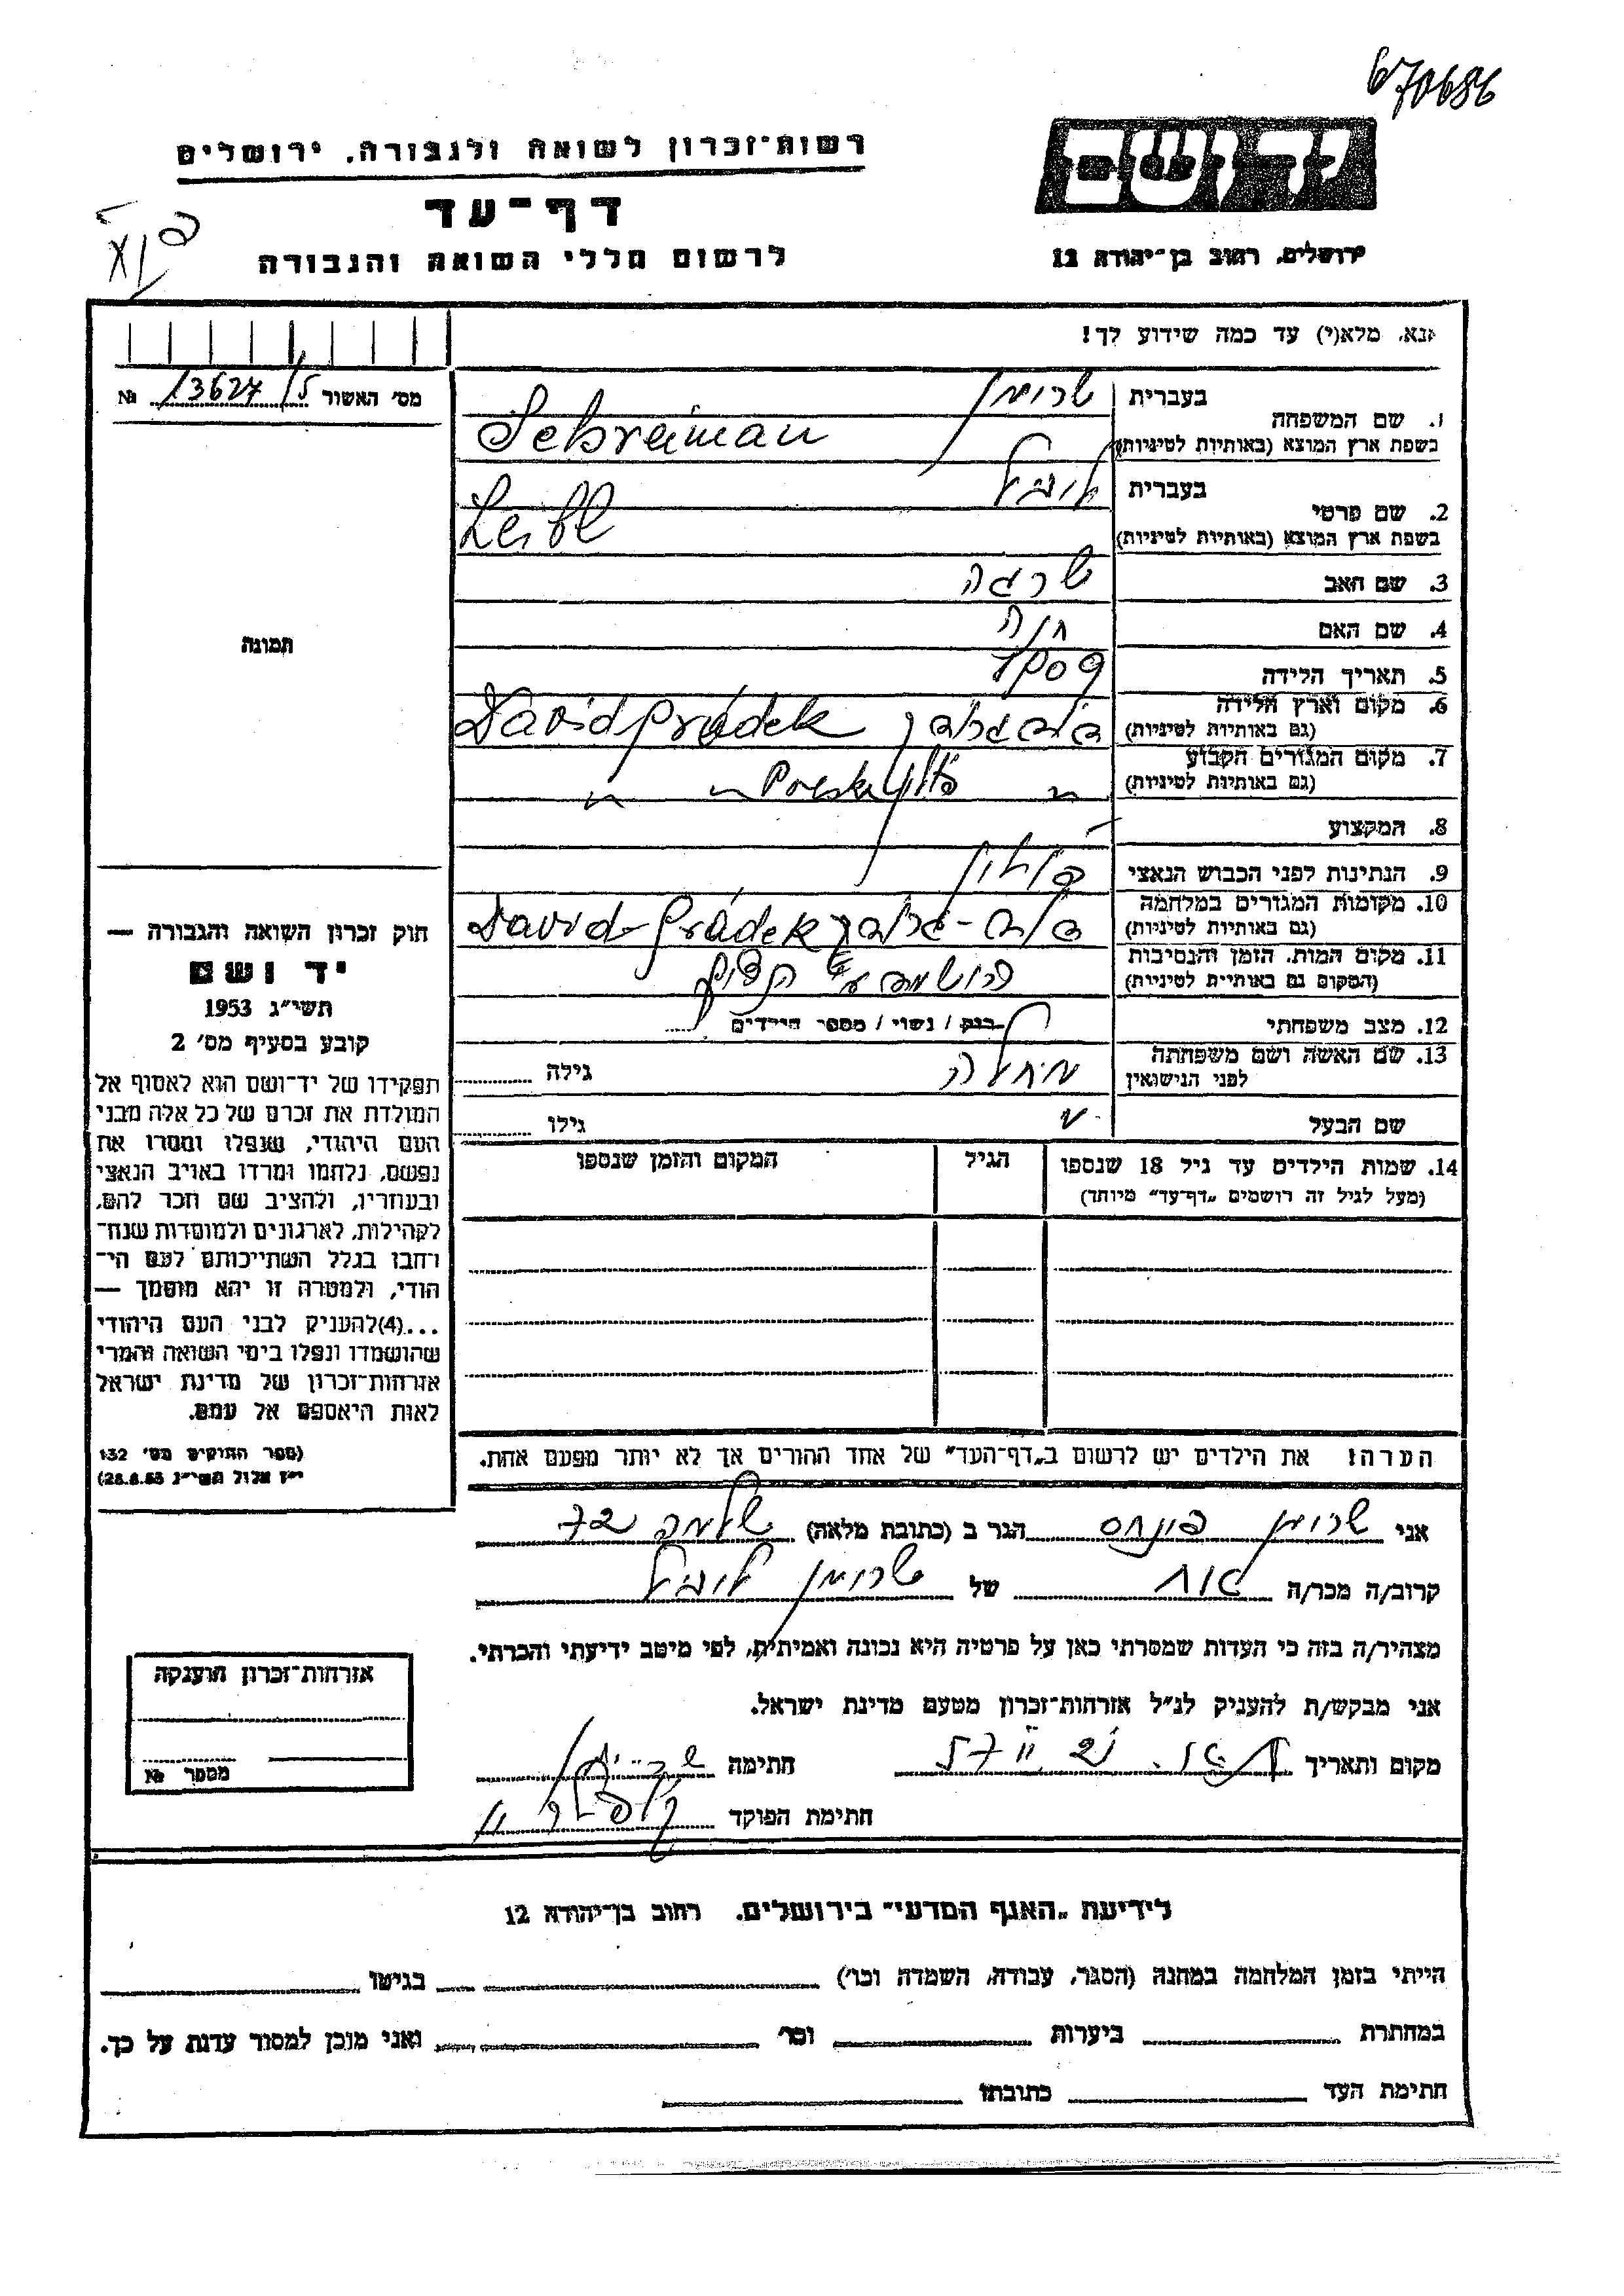 670686
רשות־זכרון לשואה ולגבורה, ירושלים
דף־עד
לרשום חללי השואה והגבורה
יד ושם
ירושלים, רחוב בן־יהודה 12
נא, מלא(י) עד כמה שידוע לך!
מס׳ האשור 13627/5 №
תמונה
1. שם המשפחה בעברית שרימן
בשפת ארץ המוצא (באותיות לטיניות) Schreiman
2. שם פרטי בעברית ליבל
בשפת ארץ המוצא (באותיות לטיניות) Leibl
3. שם האב שרגה
4. שם האם חנה
5. תאריך הלידה 1909
6. מקום וארץ הלידה
(גם באותיות לטיניות) Davidgródek
7. מקום המגורים הקבוע
(גם באותיות לטיניות)
8. המקצוע
9. הנתינות לפני הכבוש הנאצי פולין
10. מקומות המגורים במלחמה
(גם באותיות לטיניות) David-Gródek
11. מקום המות, הזמן והנסיבות
(המקום גם באותיות לטיניות)
12. מצב משפחתי רווק / נשוי / מספר הילדים
13. שם האשה ושם משפחתה
לפני הנישואין גילה
שם הבעל גילו
14. שמות הילדים עד גיל 18 שנספו הגיל המקום והזמן שנספו
(מעל לגיל זה רושמים „דף־עד״ מיוחד)
הערה: את הילדים יש לרשום ב„דף־העד״ של אחד ההורים אך לא יותר מפעם אחת.
חוק זכרון השואה והגבורה —
יד ושם
תשי״ג 1953
קובע בסעיף מס׳ 2
תפקידו של יד־ושם הוא לאסוף אל
המולדת את זכרם של כל אלה מבני
העם היהודי, שנפלו ומסרו את
נפשם, נלחמו ומרדו באויב הנאצי
ובעוזריו, ולהציב שם וזכר להם,
לקהילות, לארגונים ולמוסדות שנח־
רבו בגלל השתייכותם לעם הי־
הודי, ולמטרה זו יהא מוסמך —
...(4)להעניק לבני העם היהודי
שהושמדו ונפלו בימי השואה והמרי
אזרחות־זכרון של מדינת ישראל
לאות היאספם אל עמם.
(ספר החוקים מס׳ 132
י״ז אלול תשי״ג 28.8.53)
אני שרימן פינחס הגר ב (כתובת מלאה)
קרוב/ה מכר/ה אח של שרימן ליבל
מצהיר/ה בזה כי העדות שמסרתי כאן על פרטיה היא נכונה ואמיתית, לפי מיטב ידיעתי והכרתי.
אני מבקש/ת להעניק לנ״ל אזרחות־זכרון מטעם מדינת ישראל.
מקום ותאריך חתימה
חתימת הפוקד
אזרחות־זכרון הוענקה
מספר №
לידיעת „האגף המדעי״ בירושלים. רחוב בן־יהודה 12
הייתי בזמן המלחמה במחנה (הסגר, עבודה, השמדה וכו׳) בגיטו
במחתרת ביערות וכו׳ ואני מוכן למסור עדות על כך.
חתימת העד כתובתו